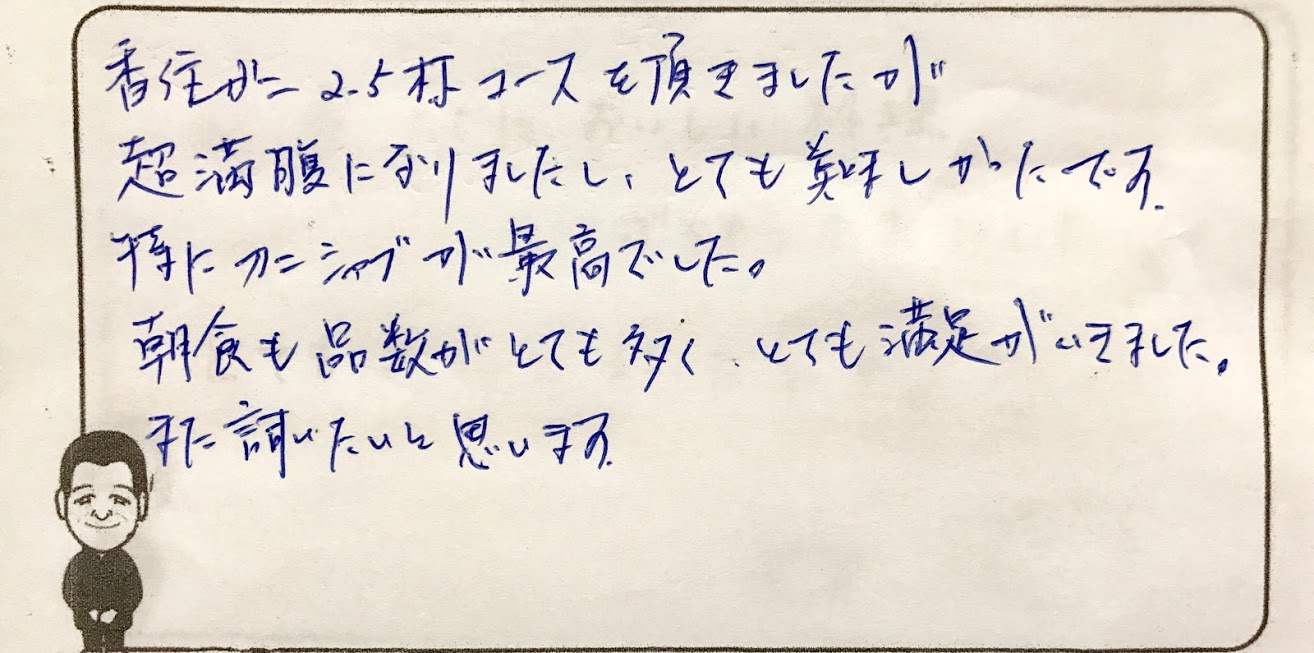 香住がに 2.5杯コースを頂きましたが
超満腹になりましたし、とても美味しかったです。
特にカニシャブが最高でした。
朝食も品数がとても多く、とても満足がいきました。
また伺いたいと思います。